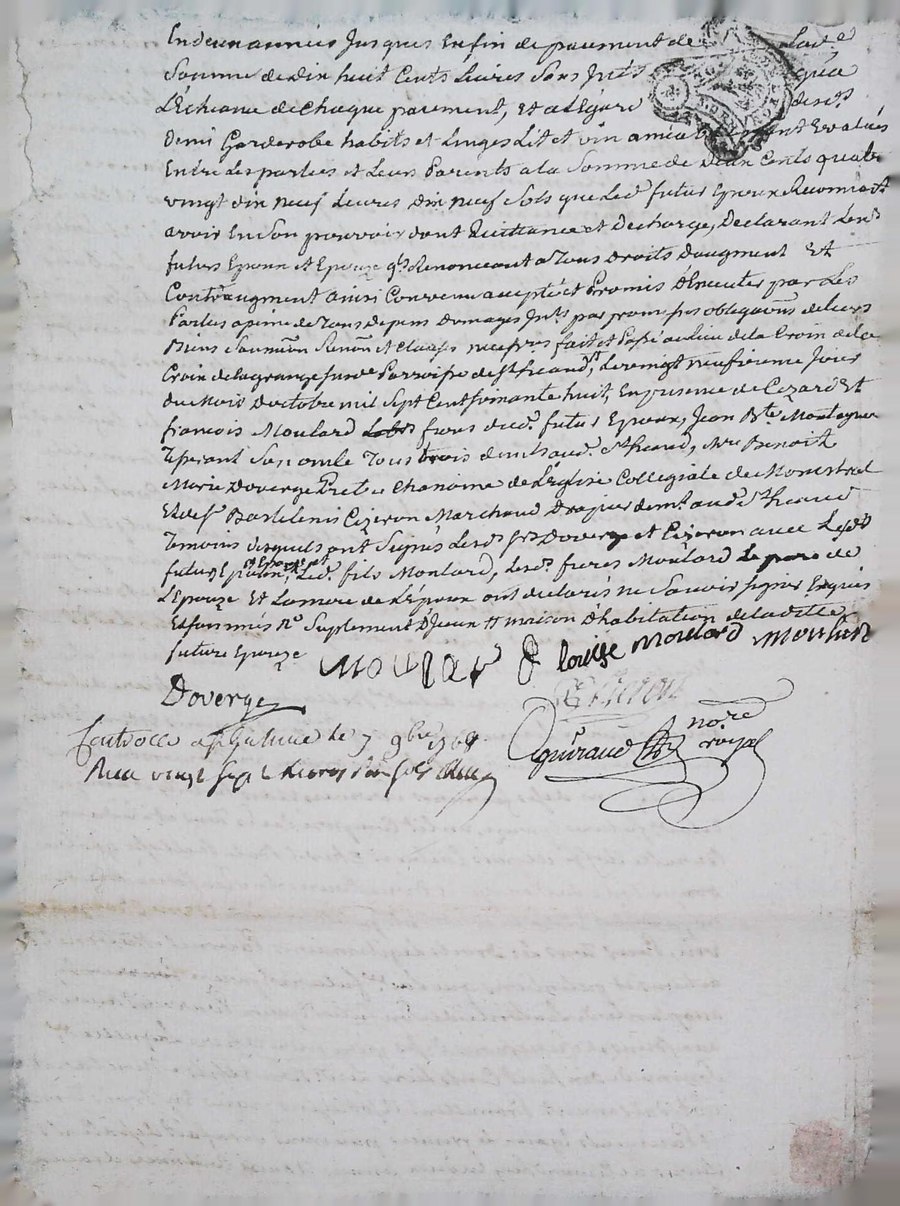 En deux années Jusques En fin de paiement de lad.e
Somme de dix huit Cents Livres Sans Jnts qu'a
L'Echeance de Chaque paiement, Et a L'Egard desd.s
demi Garderobe habits et Linges Lit et vin amiablement Evalués
Entre Les parties et Leurs Parents a la Somme de deux Cents quatre
vingt dix neuf Livres dix neuf Sols que Led.t futur Epoux Reconnoit
avoir En Son pouvoir dont Quittance et Decharge, Declarant Lesd.s
futurs Epoux et Epouze qu'ils Renonceant a Tous Droits D'augment Et
Contr'augment ainsi Convenu accepté et Promis D'Executer par Les
Parties a peine de Tous Depens Domages Jnts par
Biens et Clauses fait et Passé au Lieu de la Croix de la
Croix de la grange Susd.e Parroisse de St heand, Le vingt neufvieme Jour
du Mois D'octobre mil Sept Cent soixante huit, En presence de Cezard Et
francois Moulard freres dud.t futur Epoux, Jean B.te Montagne
Son oncle Tous trois dem.ts aud.t St heand, M.re Benoit
Marie Doverge Pretre Chanoine de L'Eglise Collegiale de
Et de S.r Barthelemi Cizeron Marchand Drapier dem.t aud.t St heand
Temoins desquels ont Signés Lesd.s s.rs Doverge et Cizeron avec Lesd.s
futurs Epoux, Et Epouze et Led.t fils Moulard, Lesd.s freres Moulard Le pere de
L'Epouze Et La mere de L'Epoux ont declarés ne Savoir Signer Enquis
Et sommés Suplement D'Jceux maison D'habitation de la ditte
future Epouze Moulard Louise Moulard Moulard
Doverge Cizeron
Controllé a le 7 9bre 1768
Recu vingt Sept Livres Sols
guiraud no.re
royal